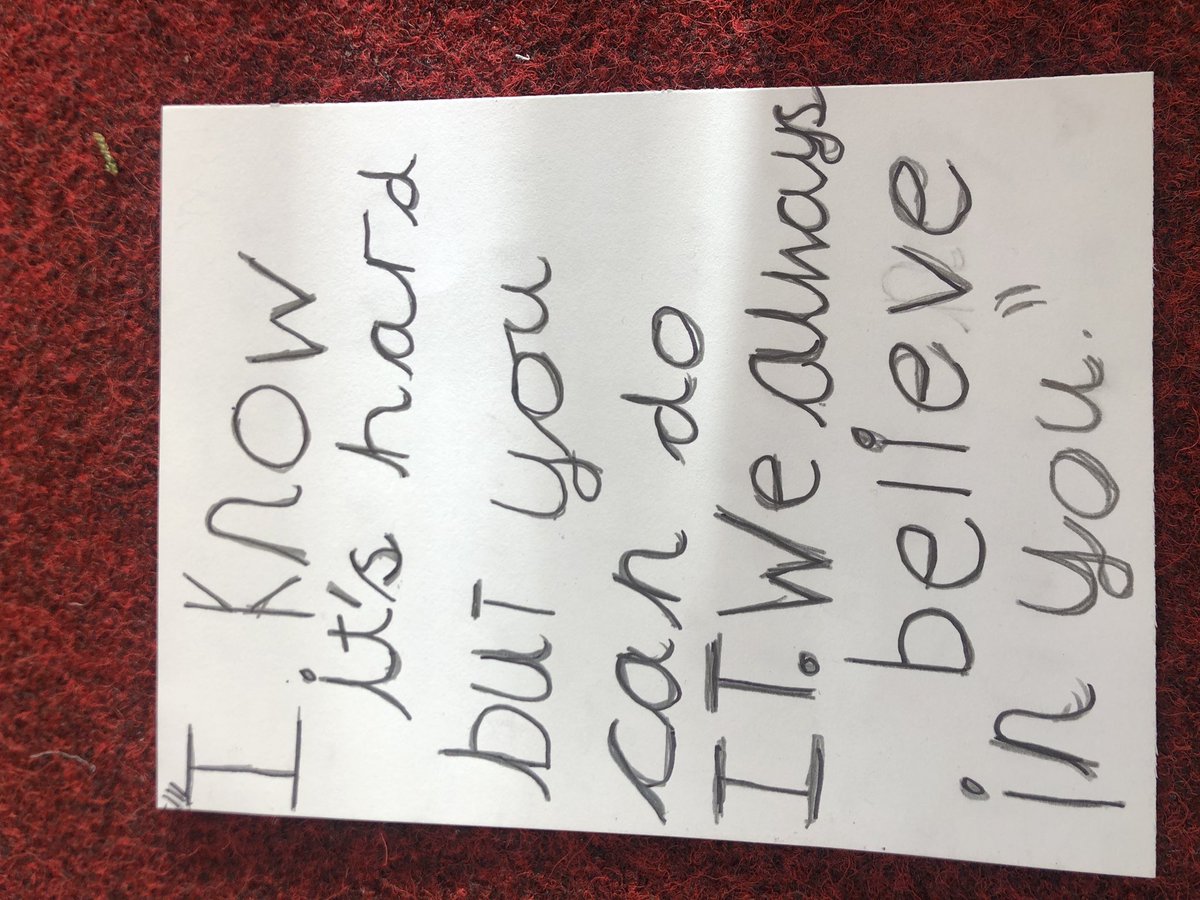 "I know
it's hard
but you
can do
IT. We always
believe
in you."